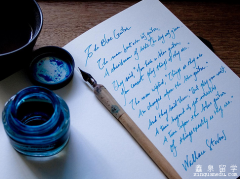 Blue Guitar
The man bent over his guitar,
A shearsman of sorts. The day was green.
They said, "You have a blue guitar,
You do not play things as they are."
The man replied, "Things as they are
Are changed upon the blue guitar."
And they said then, "But play, you must,
A tune beyond us, yet ourselves,
A tune upon the blue guitar
Of things exactly as they are."
Wallace Stevens
留学